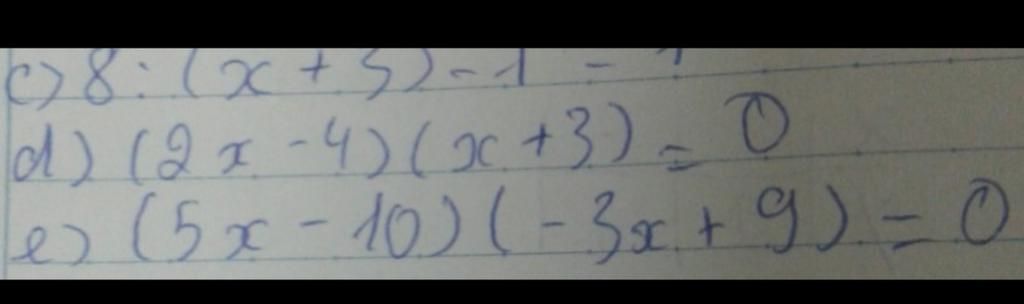 c) 8 : (x + 5) - 1 =
d) (2x - 4)(x + 3) = 0
e) (5x - 10)(-3x + 9) = 0